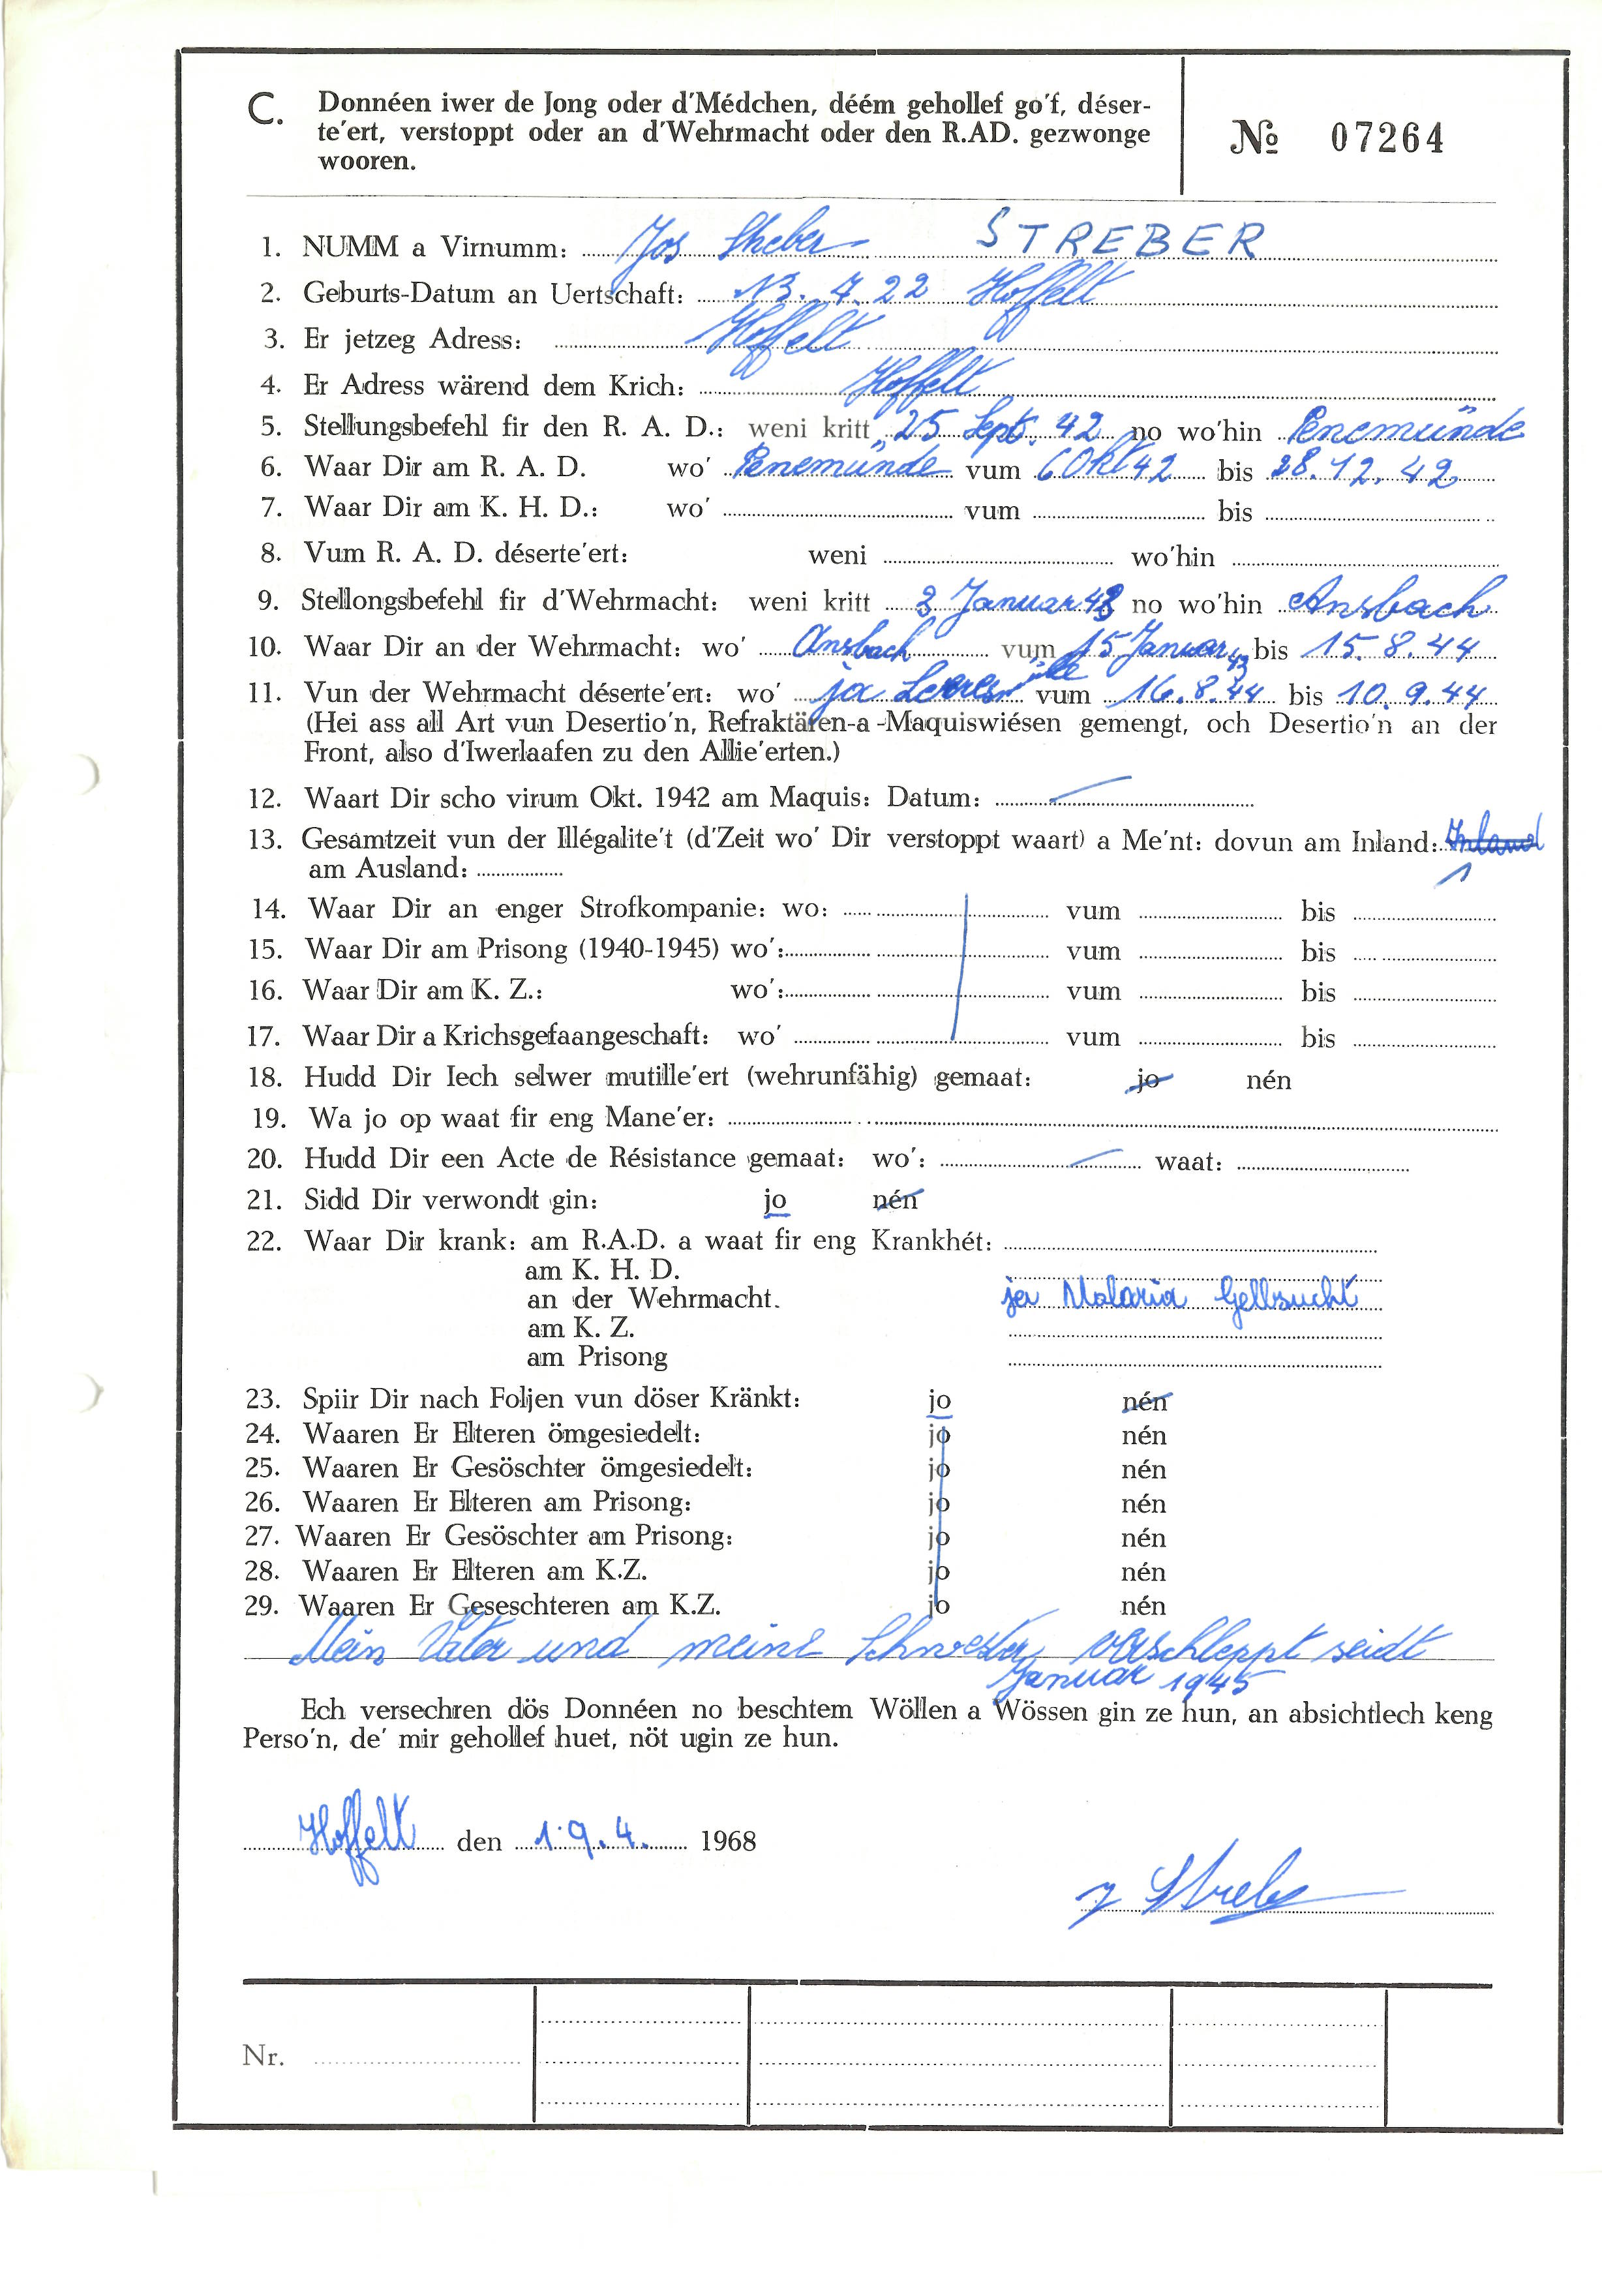 C. Donnéen iwer de Jong oder d'Médchen, déém gehollef go'f, déser-
te'ert, verstoppt oder an d'Wehrmacht oder den R.AD. gezwonge
wooren.
№ 07264
1. NUMM a Virnumm: Jos Streber STREBER
2. Geburts-Datum an Uertschaft: 13. 7. 22 Hoffelt
3. Er jetzeg Adress: Hoffelt
4. Er Adress wärend dem Krich: Hoffelt
5. Stellungsbefehl fir den R. A. D.: weni kritt 25 Sept. 42 no wo'hin Penemünde
6. Waar Dir am R. A. D. wo' Penemünde vum 6 Okt 42 bis 28. 12. 42
7. Waar Dir am K. H. D.: wo' vum bis
8. Vum R. A. D. déserte'ert: weni wo'hin
9. Stellongsbefehl fir d'Wehrmacht: weni kritt 2 Januar 43 no wo'hin Ansbach
10. Waar Dir an der Wehrmacht: wo' Ansbach vum 15 Januar 43 bis 15. 8. 44
11. Vun der Wehrmacht déserte'ert: wo' ja vum 16. 8. 44 bis 10. 9. 44
(Hei ass all Art vun Desertio'n, Refraktären-a -Maquiswiésen gemengt, och Desertio'n an der
Front, also d'Iwerlaafen zu den Allie'erten.)
12. Waart Dir scho virum Okt. 1942 am Maquis: Datum: —
13. Gesamtzeit vun der Illégalite't (d'Zeit wo' Dir verstoppt waart) a Me'nt: dovun am Inland: Inland
am Ausland: 1
14. Waar Dir an enger Strofkompanie: wo: vum bis
15. Waar Dir am Prisong (1940-1945) wo': vum bis
16. Waar Dir am K. Z.: wo': vum bis
17. Waar Dir a Krichsgefaangeschaft: wo' vum bis
18. Hudd Dir Iech selwer mutille'ert (wehrunfähig) gemaat: jo nén
19. Wa jo op waat fir eng Mane'er:
20. Hudd Dir een Acte de Résistance gemaat: wo': — waat:
21. Sidd Dir verwondt gin: jo nén
22. Waar Dir krank: am R.A.D. a waat fir eng Krankhét:
am K. H. D.
an der Wehrmacht. ja Malaria Gelbsucht
am K. Z.
am Prisong
23. Spiir Dir nach Foljen vun döser Kränkt: jo nén
24. Waaren Er Elteren ömgesiedelt: jo nén
25. Waaren Er Gesöschter ömgesiedelt: jo nén
26. Waaren Er Elteren am Prisong: jo nén
27. Waaren Er Gesöschter am Prisong: jo nén
28. Waaren Er Elteren am K.Z. jo nén
29. Waaren Er Geseschteren am K.Z. jo nén
Mein Vater und meine Schwester verschleppt seidt
Januar 1945
Ech versechren dös Donnéen no beschtem Wöllen a Wössen gin ze hun, an absichtlech keng
Perso'n, de' mir gehollef huet, nöt ugin ze hun.
Hoffelt den 19. 4. 1968
J Streber
Nr.